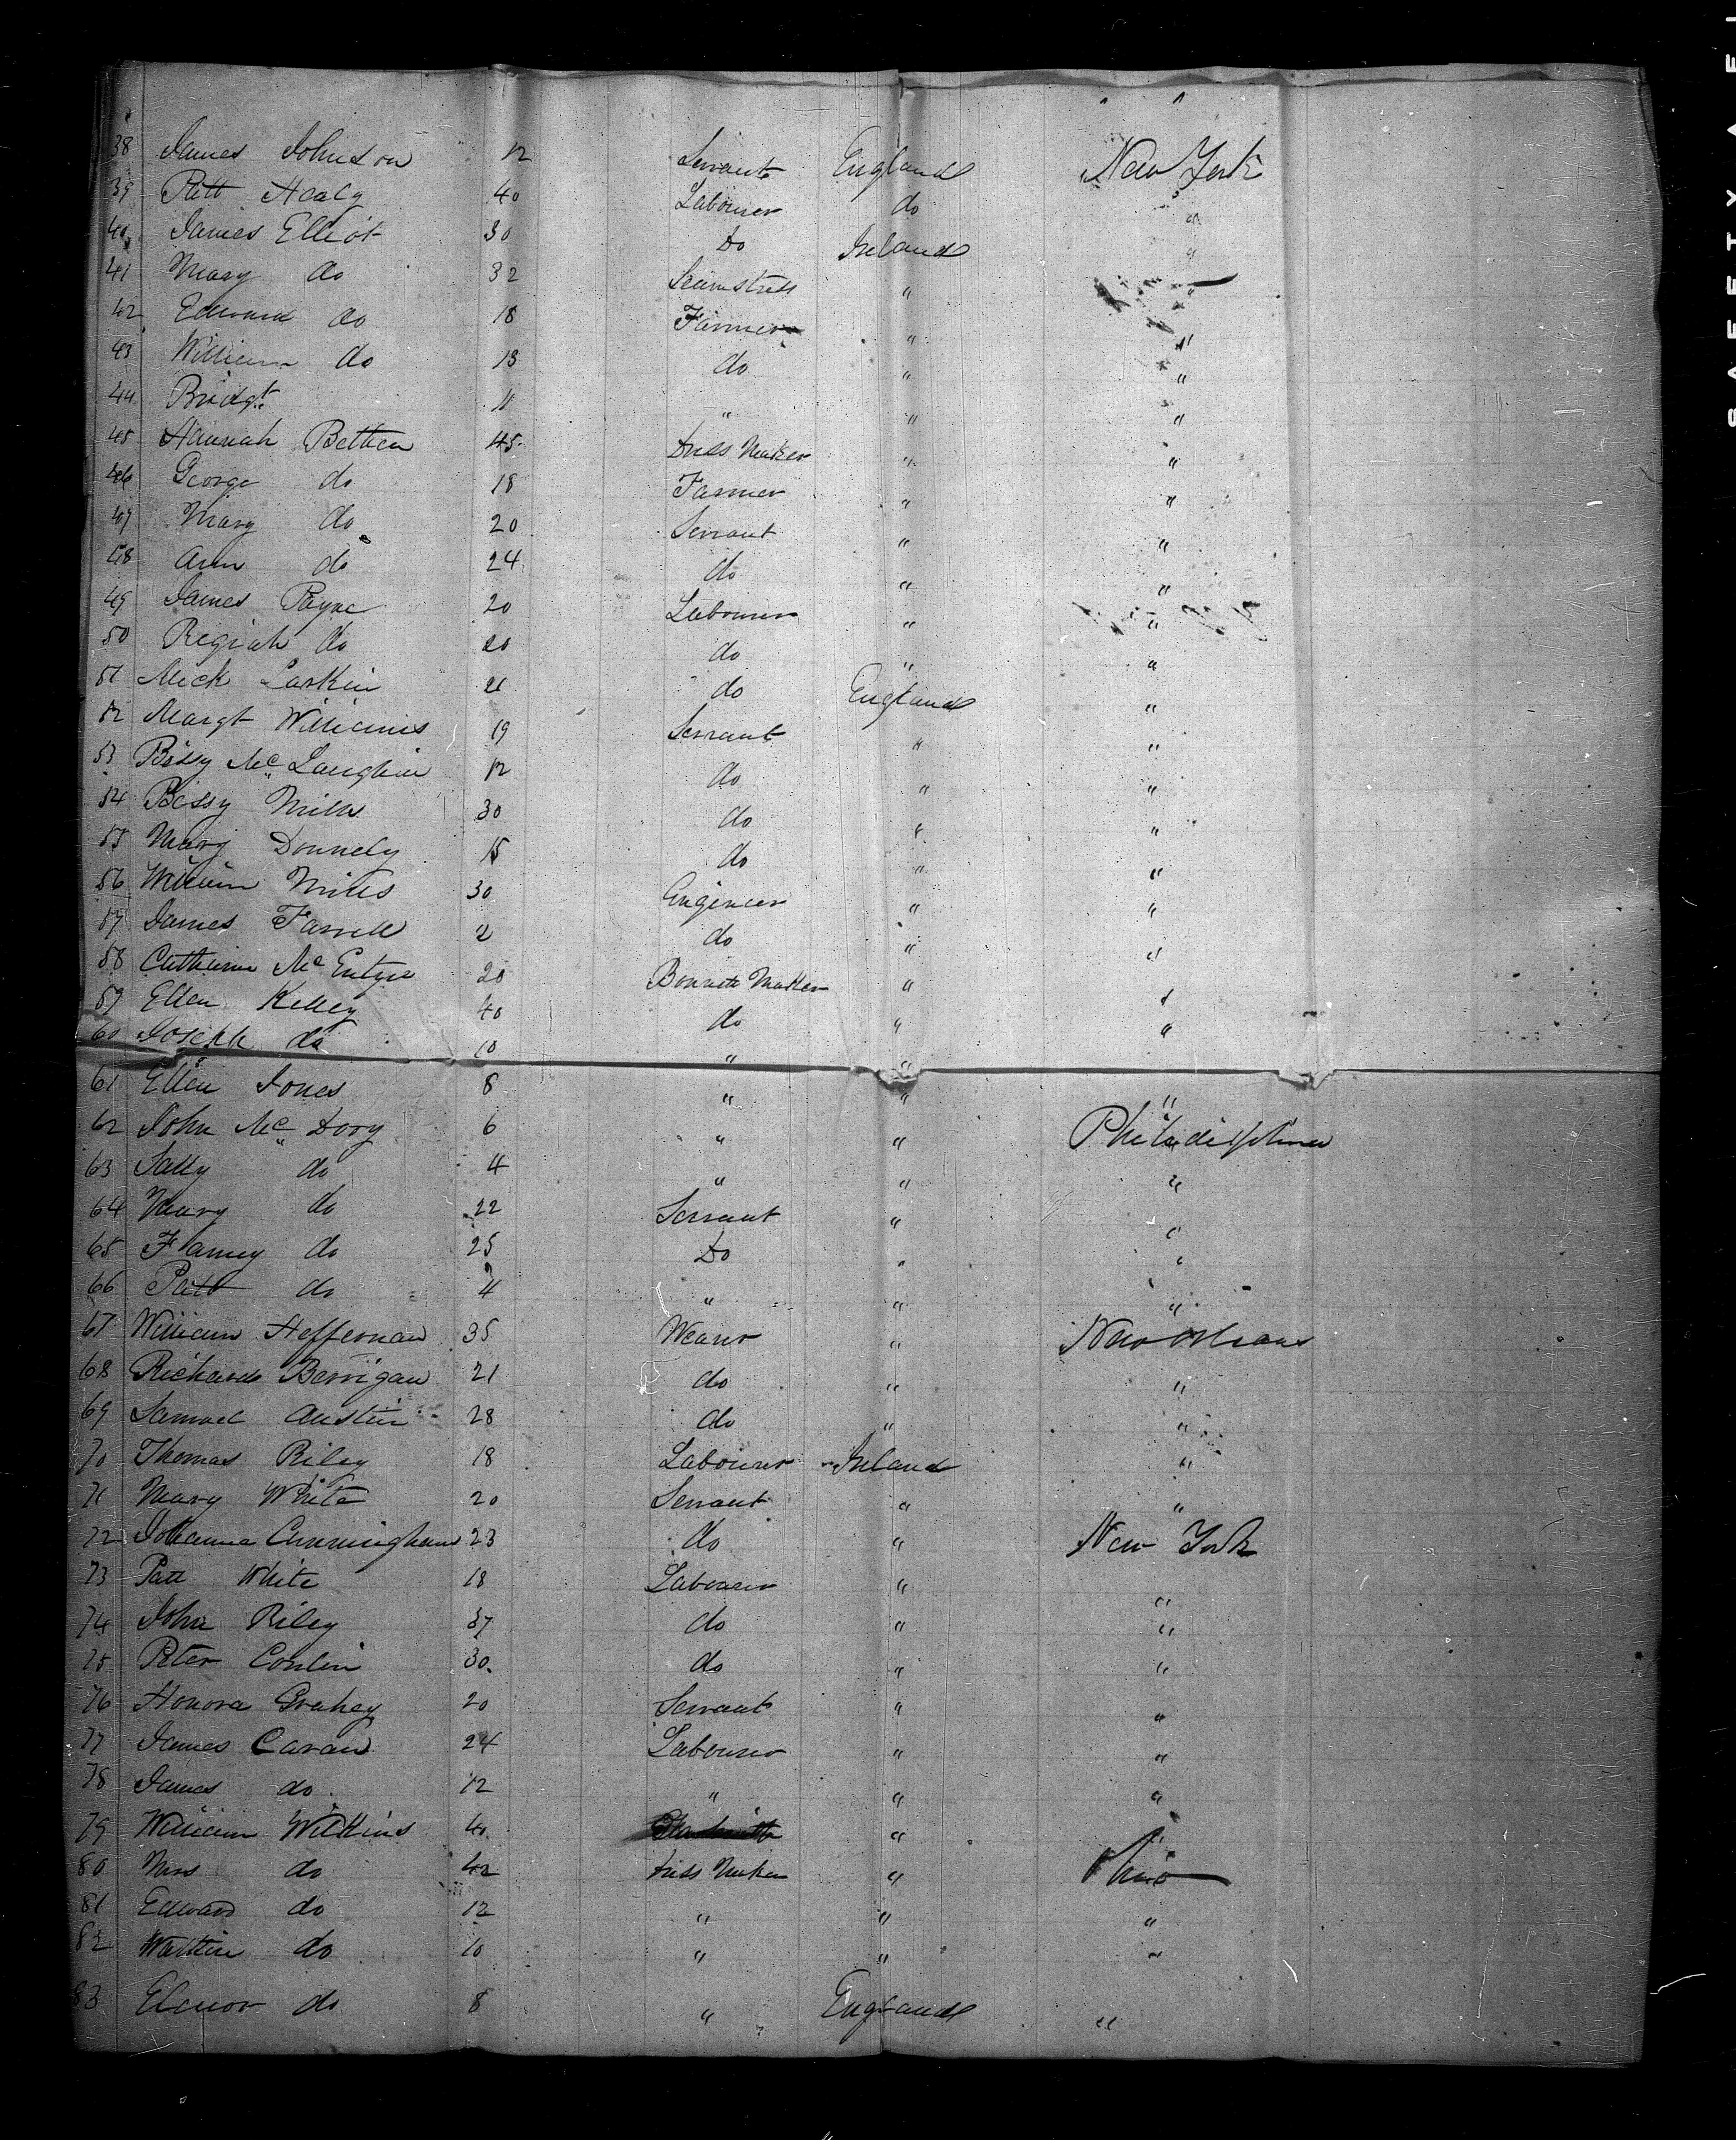 38 James Johnson 12 Servant England New York
39 Patt Healy 40 Labourer do "
40 James Elliot 30 Do Ireland "
41 Mary do 32 Seamstress " "
42 Edward do 18 Farmer " "
43 William do 13 do " "
44 Bridgt 11 " " "
45 Hannah 45 Dress Maker " "
46 George do 18 Farmer " "
47 Mary do 20 Servant " "
48 Ann do 24 do " "
49 James Payne 20 Labourer " "
50 do 20 do " "
51 Mick Larkin 21 do England "
52 Margt Williams 19 Servant " "
53 Bessy Mc Laughlin 12 do " "
54 Bessy Mills 30 do " "
55 Mary Donnely 15 do " "
56 William Mills 30 Engineer " "
57 James Farrell do " "
58 Catherine Mc Entyre 20 Bonnett Maker " "
59 Ellen Kelley 40 do " "
60 Joseph do 10 " "
61 Ellen Jones 8 " " "
62 John Mc Dory 6 " " Philadelphia
63 Sally do 4 " " "
64 Mary do 22 Servant " "
65 Fanny do 25 Do " "
66 Patt do 4 " " "
67 William Heffernan 35 Weaver " New Orleans
68 Richard Berrigan 21 do " "
69 Samuel Austin 28 do " "
70 Thomas Riley 18 Labourer Ireland "
71 Mary White 20 Servant " "
72 Johanna Cunningham 23 do " New York
73 Patt White 18 Labourer " "
74 John Riley 37 do " "
75 Peter Conlin 30 do " "
76 Honora Grahey 20 Servant " "
77 James Cavan 24 Labourer " "
78 James do 12 " " "
79 William Wilkins " "
80 Mrs do 42 Dress Maker " Ohio
81 Edward do 12 " " "
82 do 10 " " "
83 Elenor do 8 " England "
SAFETY